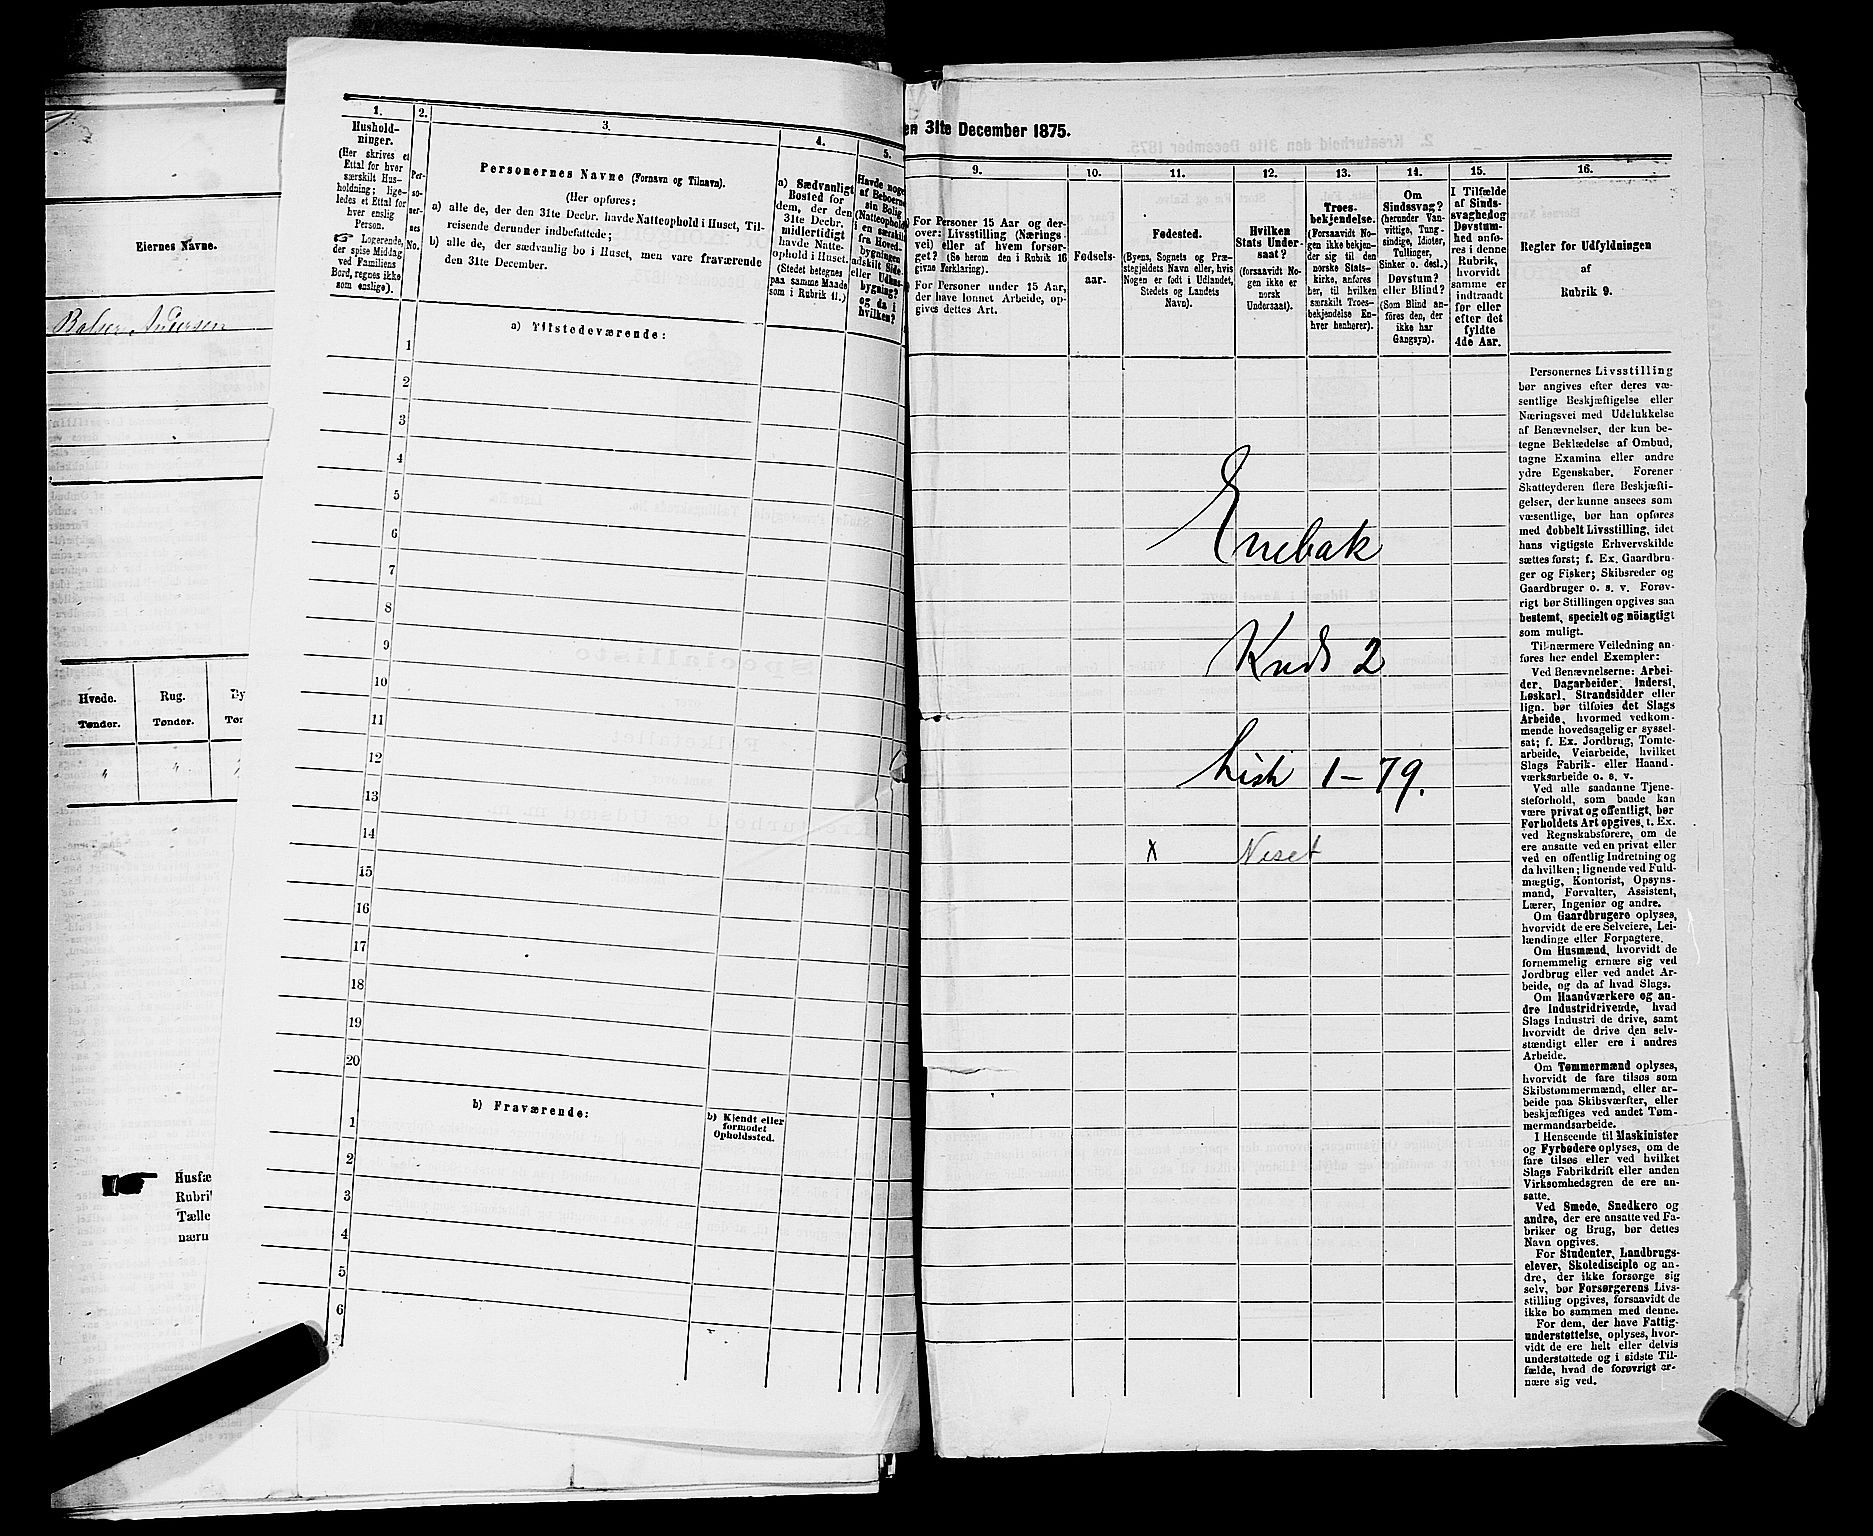 Eiernes Navne.
Andersen
Hvede. Rug.
Tønder. Tønder.
Husfæ
Rubri
Tælle
nærn
1.
Hushold-
ninger.
(Her skrives et
Ettal for hver
særskilt Hus-
holdning; lige-
ledes et Ettal for
hver enslig
Person.
Logerende,
der spise Middag
ved Familiens
Bord, regnes ikke
som enslige).
2.
Per-
so-
ner-
nes
No.
3.
Personernes Navne (Fornavn og Tilnavn).
(Her opføres:
a) alle de, der den 31te Decbr. havde Natteophold i Huset, Til-
reisende derunder indbefattede;
b) alle de, der sædvanlig bo i Huset, men vare fraværende
den 31te December.
4.
a) Sædvanligt
Bosted for
dem, der den
31te Decbr.
midlertidigt
havde Natte-
ophold i Huset.
(Stedet betegnes
paa samme Maade
som i Rubrik 11.)
5.
Havde nogen
af Beboerne
sin Bolig
(Natteophold)
i en særskilt
fra Hoved-
bygningen
adskilt Side-
eller Udhus-
bygning?
og da i
hvilken?
a) Tilstedeværende:
1
2
3
4
5
6
7
8
9
10
11
12
13
14
15
16
17
18
19
20
b) Fraværende:
b) Kjendt eller
formodet
Opholdssted.
1
2
3
4
5
6
en 31te December 1875.
9.
For Personer 15 Aar og der-
over: Livsstilling (Nærings-
vei) eller af hvem forsør-
get? (Se herom den i Rubrik 16
givne Forklaring).
For Personer under 15 Aar,
der have lønnet Arbeide, op-
gives dettes Art.
10.
Fødsels-
aar.
11.
Fødested.
(Byens, Sognets og Præ-
stegjeldets Navn eller, hvis
Nogen er født i Udlandet,
Stedets og Landets
Navn).
12.
Hvilken
Stats Under-
saat?
(forsaavidt No-
gen ikke er
norsk
Undersaat).
13.
Troes-
bekjendelse.
(Forsaavidt No-
gen ikke bekjen-
der sig til den
norske Stats-
kirke, anføres
her, til hvilken
særskilt Troes-
bekjendelse En-
hver henhører).
14.
Om
Sindssvag?
(herunder Van-
vittige, Tung-
sindige, Idioter,
Tullinger,
Sinker o. desl.)
Døvstum?
eller Blind?
(Som Blind an-
føres den, der
ikke har
Gangsyn).
15.
I Tilfælde
af Sinds-
svaghed og
Døvstum-
hed anfø-
res i denne
Rubrik,
hvorvidt
samme er
indtraadt
før eller
efter det
fyldte
4de Aar.
16.
Regler for Udfyldningen
af
Rubrik 9.
Enebak
Kreds 2
Liste 1-79.
x Neset
Personernes Livsstilling
bør angives efter deres væ-
sentlige Beskjæftigelse eller
Næringsvei med Udelukkelse
af Benævnelser, der kun be-
tegne Beklædelse af Ombud,
tagne Examina eller andre
ydre Egenskaber. Forener
Skatteyderen flere Beskjæfti-
gelser, der kunne ansees som
væsentlige, bør han opføres
med dobbelt Livsstilling, idet
hans vigtigste Erhvervskilde
sættes først; f. Ex. Gaardbru-
ger og Fisker; Skibsreder og
Gaardbruger o. s. v. Forøv-
rigt bør Stillingen opgives saa
bestemt, specielt og nöiagtigt
som muligt.
Til nærmere Veiledning an-
føres her endel Exempler:
Ved Benævnelserne: Arbei-
der, Dagarbeider, Inderst,
Løskarl, Strandsidder eller
lign. bør tilføies det Slags
Arbeide, hvormed vedkom-
mende hovedsagelig er syssel-
sat; f. Ex. Jordbrug, Tomte-
arbeide, Veiarbeide, hvilket
Slags Fabrik- eller Haand-
værksarbeide o. s. v.
Ved alle saadanne Tjene-
steforhold, som baade kan
være privat og offentligt, bør
Forholdets Art opgives, t. Ex.
ved Regnskabsførere, om de
ere ansatte ved en privat eller
ved en offentlig Indretning og
da hvilken; lignende ved Fuld-
mægtig, Kontorist, Opsyns-
mand, Forvalter, Assistent,
Lærer, Ingeniør og andre.
Om Gaardbrugere oplyses,
hvorvidt de ere Selveiere, Lei-
lændinge eller Forpagtere.
Om Husmænd, hvorvidt de
fornemmelig ernære sig ved
Jordbrug eller ved andet Ar-
beide, og da af hvad Slags.
Om Haandværkere og an-
dre Industridrivende, hvad
Slags Industri de drive, samt
hvorvidt de drive den selv-
stændigt eller ere i andres
Arbeide.
Om Tømmermænd oplyses,
hvorvidt de fare tilsøs som
Skibstømmermænd, eller ar-
beide paa Skibsværfter, eller
beskjæftiges ved andet Tøm-
mermandsarbeide.
I Henseende til Maskinister
og Fyrbødere oplyses, om de
fare tilsøs eller ved hvilket
Slags Fabrikdrift eller anden
Virksomhedsgren de ere an-
satte.
Ved Smede, Snedkere og
andre, der ere ansatte ved Fa-
briker og Brug, bør dettes
Navn opgives.
For Studenter, Landbrugs-
elever, Skoledisciple og an-
dre, der ikke forsørge sig
selv, bør Forsørgerens Livs-
stilling opgives, forsaavidt de
ikke bo sammen med denne.
For dem, der have Fattig-
understøttelse, oplyses, hvor-
vidt de ere helt eller delvis
understøttede og i sidste Til-
fælde, hvad de forøvrigt er-
nære sig ved.